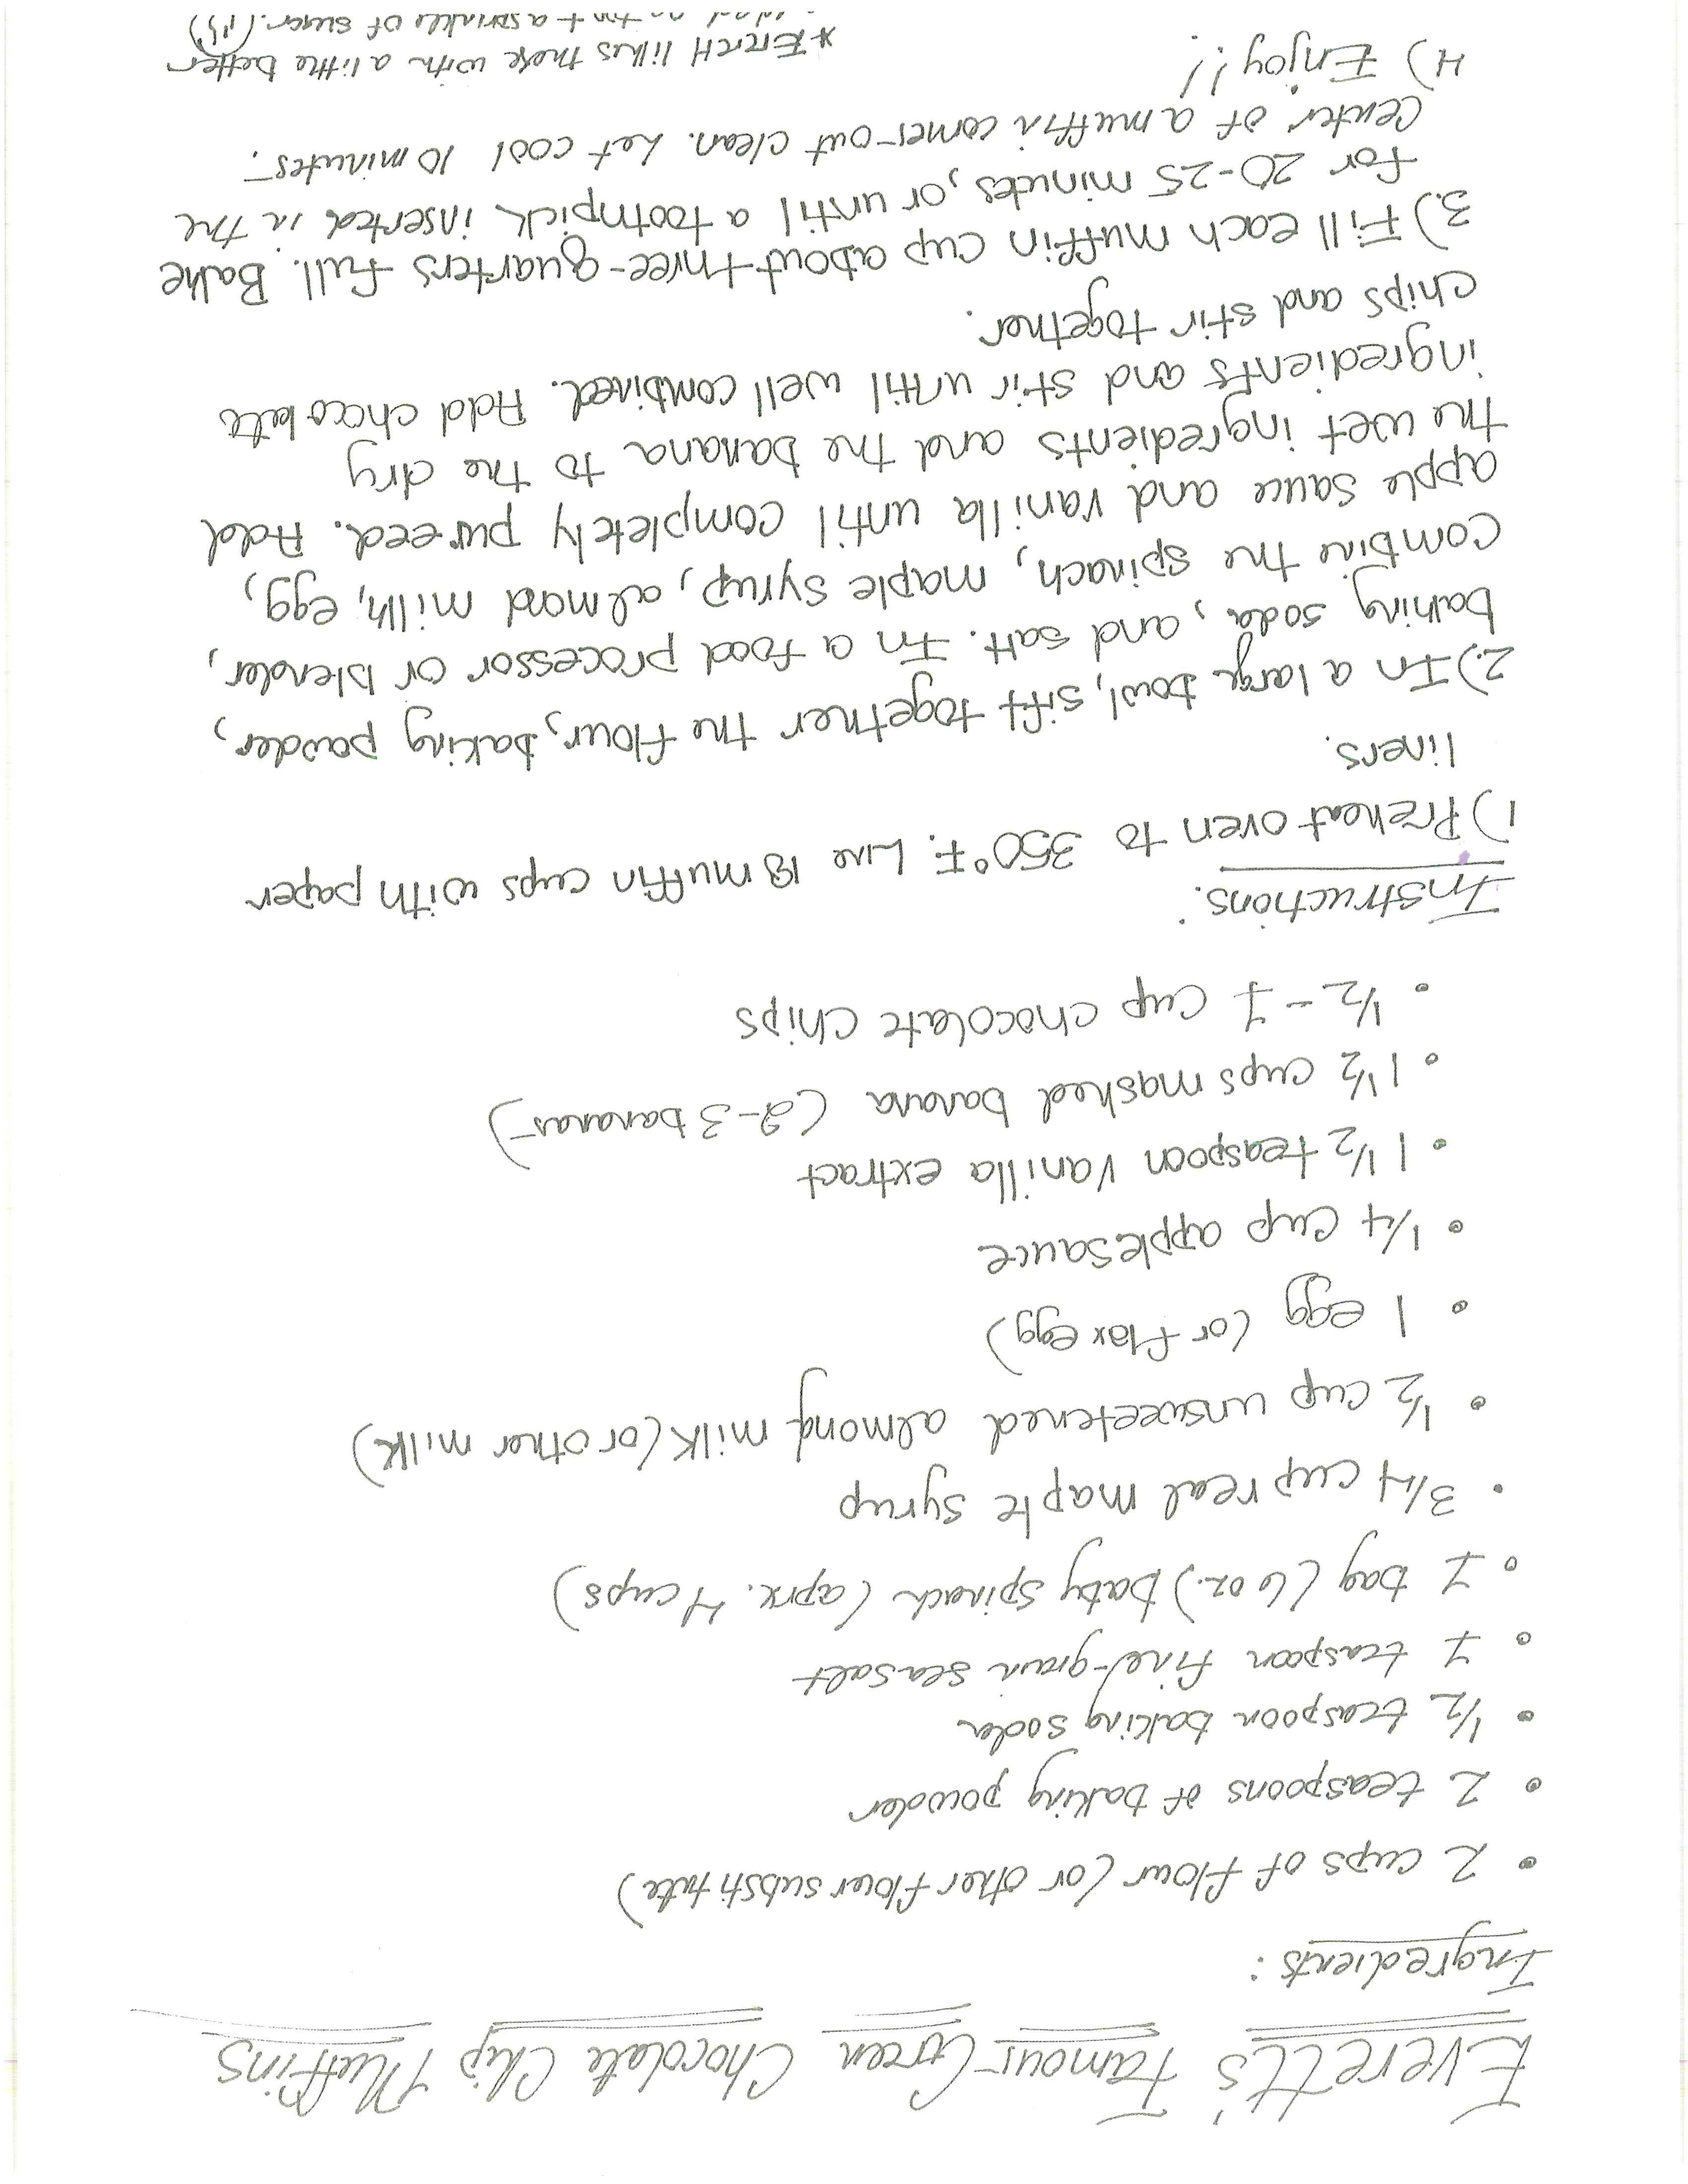 Everett's Famous Green Chocolate Chip Muffins
Ingredients:
• 2 cups of flour (or other flour substitute)
• 2 teaspoons of baking powder
• 1/2 teaspoon baking soda
• 1 teaspoon fine-grain sea salt
• 1 bag (6 oz.) baby spinach (aprx. 4 cups)
• 3/4 cup real maple syrup
• 1/2 cup unsweetened almond milk (or other milk)
• 1 egg (or flax egg)
• 1/4 cup applesauce
• 1 1/2 teaspoon vanilla extract
• 1 1/2 cups mashed banana (2-3 bananas)
• 1/2 - 1 cup chocolate chips
Instructions:
1) Preheat oven to 350°F. Line 18 muffin cups with paper
liners.
2.) In a large bowl, sift together the flour, baking powder,
baking soda, and salt. In a food processor or blender,
combine the spinach, maple syrup, almond milk, egg,
apple sauce and vanilla until completely pureed. Add
the wet ingredients and the banana to the dry
ingredients and stir until well combined. Add chocolate
chips and stir together.
3.) Fill each muffin cup about three-quarters full. Bake
for 20-25 minutes, or until a toothpick inserted in the
center of a muffin comes out clean. Let cool 10 minutes.
4) Enjoy!!
likes these with a little better
a sprinkle of sugar. (:))